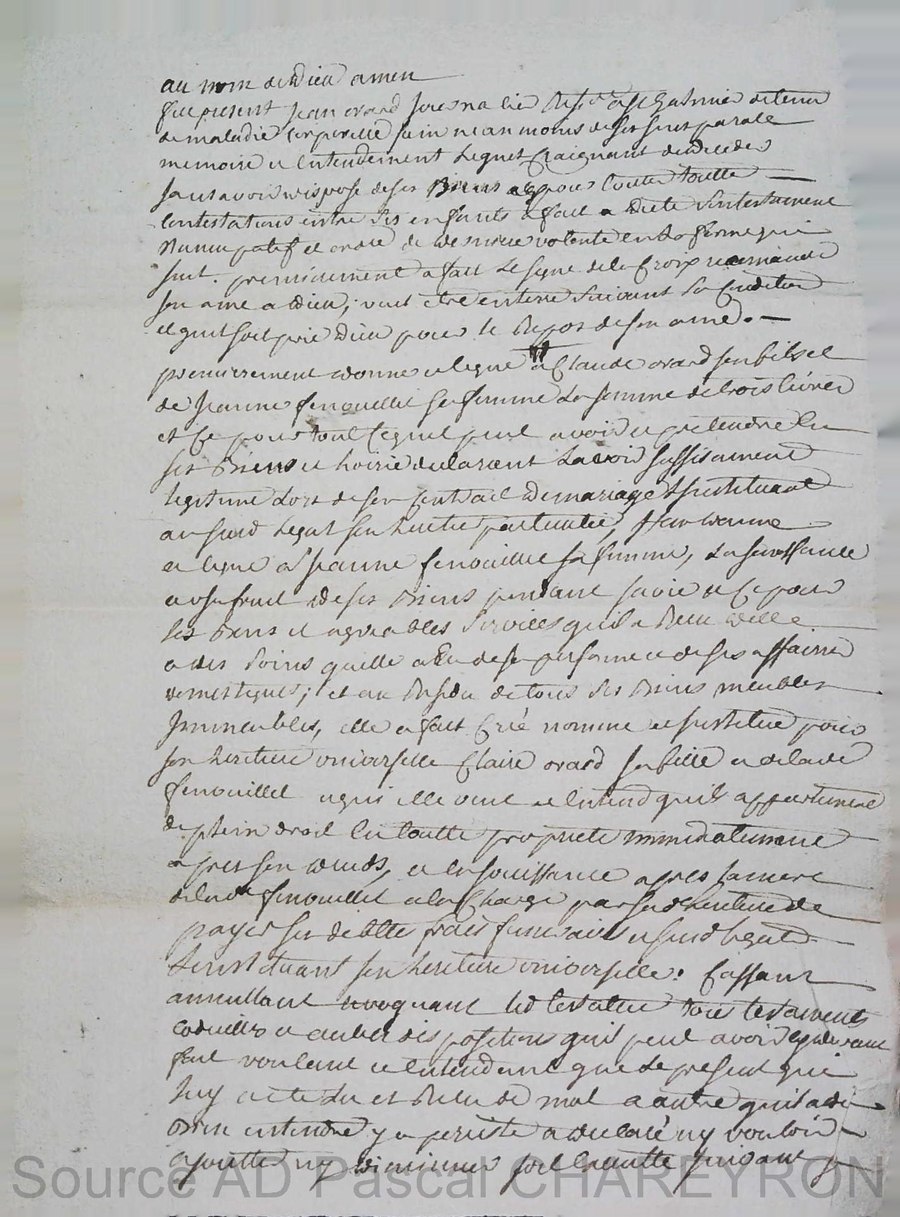 au nom de Dieu amen
fut present Jean orard
de maladie Corporelle sain neanmoins de ses sens parolle
memoire et Entendement Lequel Craignant de deceder
sans avoir dispose de ses Biens et pour Eviter toutte
Contestations entre ses enfants a fait a Dicté son testament
Nuncupatif et ordre de derniere volonté en La forme qui
suit. premierement a fait Le signe de la Croix recommandé
son ame a Dieu, veut etre enterré suivant Sa Condition
et quil soit prie Dieu pour le Repos de son ame.
premierement donne et legue a Claude orard son fils et
de Jeanne fenouillet sa femme La somme de trois livres
et Ce pour tout Ce quil peut avoir et pretendre En
ses Biens et hoirie declarant Lavoir suffisament
legitimé Lors de son Contrat de mariage Linstituant
au susd Legat son heritier particulier, Item donne
et legue a Jeanne fenouillet sa femme, La Jouissance
et usufruit de ses Biens pendant sa vie et Ce pour
les Bons et agreables Services quil a Recu delle
et des Soins quelle a Eu de sa personne et de ses affaires
domestiques; et au Residu de tous ses Biens meubles
Immeubles, il a fait Créé nommé et Institué pour
son heritiere universelle Claire orard sa fille et de lade
fenouillet a qui il veut et Entend quils appartiennent
de plein droit En toutte proprieté immediatement
apres son deces, et en Jouissance apres sa mere
de lade fenouillet a la Charge par sad heritiere de
payer ses debtes frais funeraires et susd legats
Linstituant son heritiere universelle. Cassant
annullant revoquant led testateur tous testaments
Codicilles et autres dispositions quil peut avoir Cy devant
fait voulant et Entendant que le present qui
luy a ete lu et Relu de mot a autre quil a dit
Bien entendre y a persisté a declaré ny vouloir
ajoutter ny diminuer
Source AD Pascal CHAREYRON